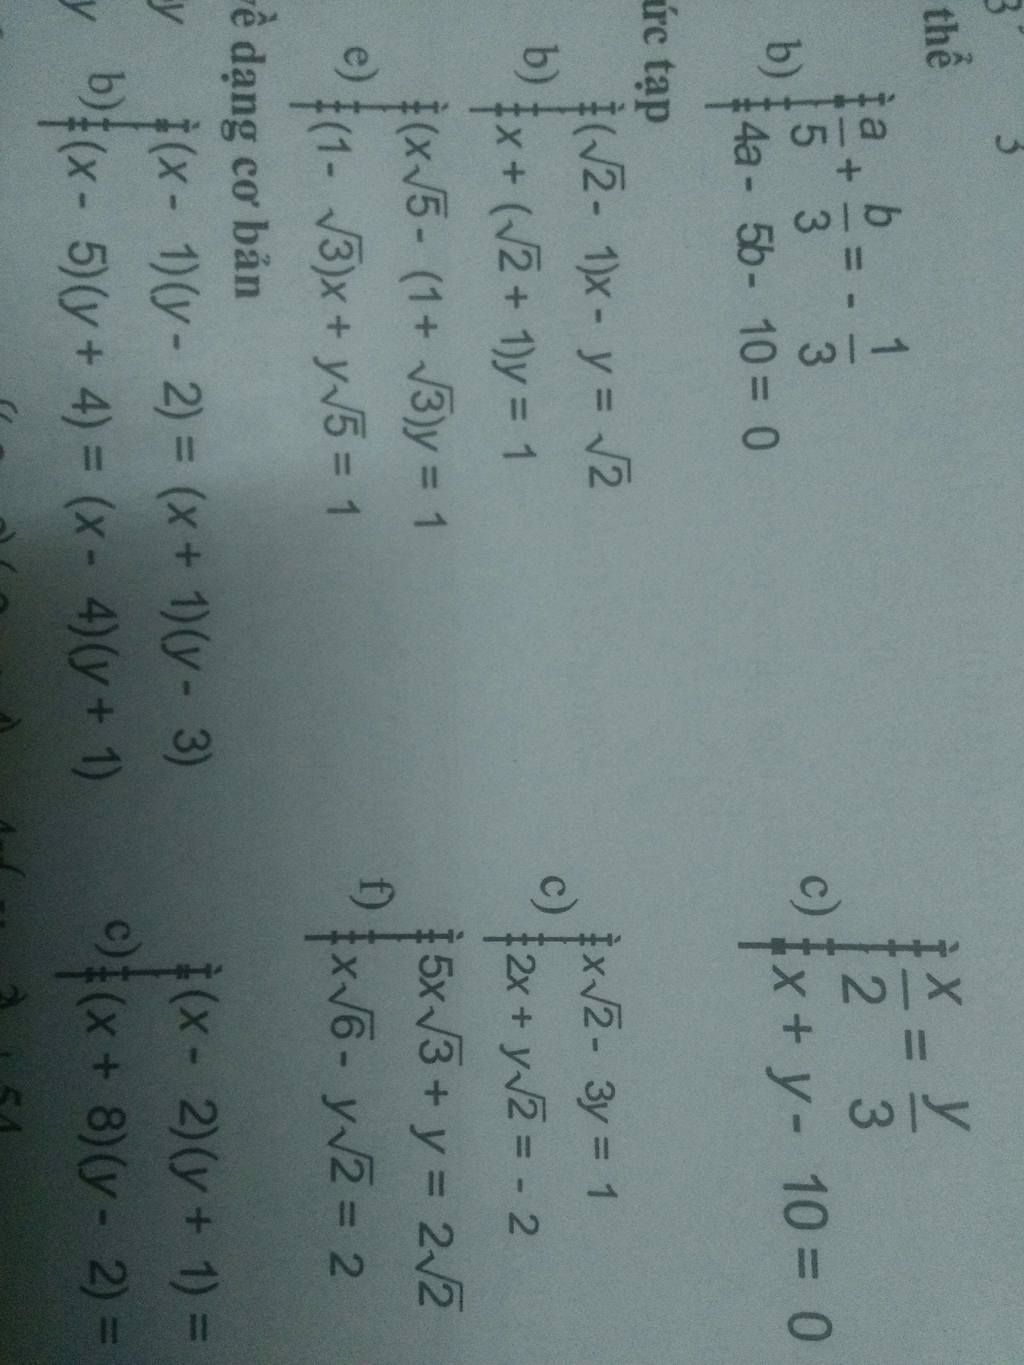 3
thể
b) a/5 + b/3 = - 1/3
4a - 5b - 10 = 0
c) x/2 = y/3
x + y - 10 = 0
ức tạp
b) (√2 - 1)x - y = √2
x + (√2 + 1)y = 1
c) x√2 - 3y = 1
2x + y√2 = - 2
e) (x√5 - (1 + √3)y = 1
(1 - √3)x + y√5 = 1
f) 5x√3 + y = 2√2
x√6 - y√2 = 2
về dạng cơ bản
y
b) (x - 1)(y - 2) = (x + 1)(y - 3)
(x - 5)(y + 4) = (x - 4)(y + 1)
c) (x - 2)(y + 1) =
(x + 8)(y - 2) =
y